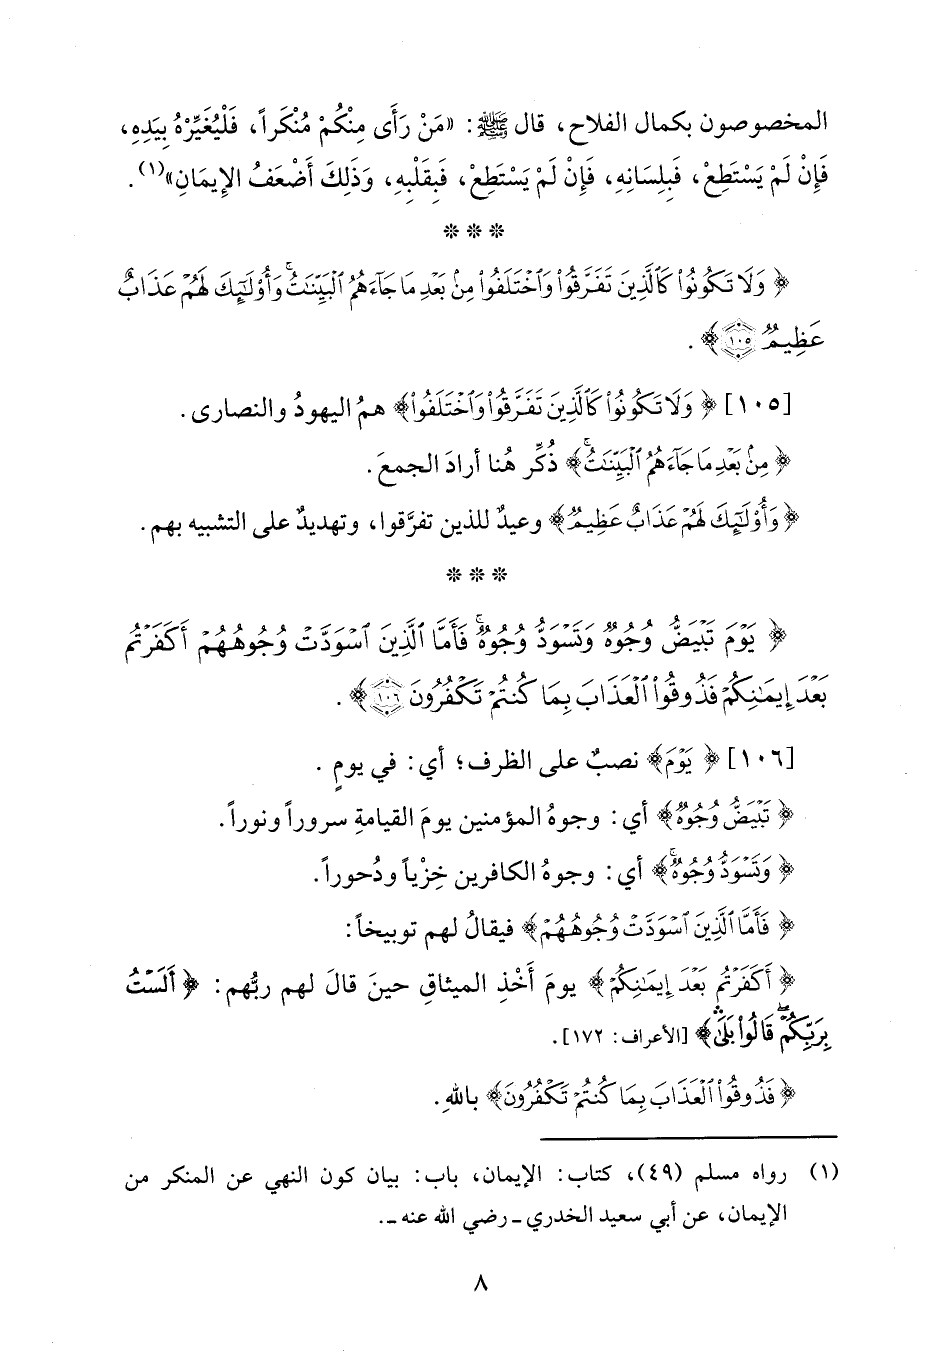 المخصوصون بكمال الفلاح، قال ﷺ: «مَنْ رَأَى مِنْكُمْ مُنْكَراً، فَلْيُغَيِّرْهُ بِيَدِهِ،
فَإِنْ لَمْ يَسْتَطِعْ، فَبِلِسَانِهِ، فَإِنْ لَمْ يَسْتَطِعْ، فَبِقَلْبِهِ، وَذَلِكَ أَضْعَفُ الإِيمَانِ»(١).
* * *
﴿ وَلَا تَكُونُوا۟ كَٱلَّذِينَ تَفَرَّقُوا۟ وَٱخْتَلَفُوا۟ مِنۢ بَعْدِ مَا جَآءَهُمُ ٱلْبَيِّنَـٰتُ ۚ وَأُو۟لَـٰٓئِكَ لَهُمْ عَذَابٌ
عَظِيمٌ ١٠٥ ﴾.
[١٠٥] ﴿ وَلَا تَكُونُوا۟ كَٱلَّذِينَ تَفَرَّقُوا۟ وَٱخْتَلَفُوا۟﴾ همُ اليهودُ والنصارى.
﴿ مِنۢ بَعْدِ مَا جَآءَهُمُ ٱلْبَيِّنَـٰتُ ۚ﴾ ذُكِّر هُنا أرادَ الجمعَ.
﴿ وَأُو۟لَـٰٓئِكَ لَهُمْ عَذَابٌ عَظِيمٌ﴾ وعيدٌ للذين تفرَّقوا، وتهديدٌ على التشبيه بهم.
* * *
﴿ يَوْمَ تَبْيَضُّ وُجُوهٌ وَتَسْوَدُّ وُجُوهٌ ۚ فَأَمَّا ٱلَّذِينَ ٱسْوَدَّتْ وُجُوهُهُمْ أَكَفَرْتُم
بَعْدَ إِيمَـٰنِكُمْ فَذُوقُوا۟ ٱلْعَذَابَ بِمَا كُنتُمْ تَكْفُرُونَ ١٠٦ ﴾.
[١٠٦] ﴿ يَوْمَ﴾ نصبٌ على الظرف؛ أي: في يومٍ .
﴿ تَبْيَضُّ وُجُوهٌ﴾ أي: وجوهُ المؤمنين يومَ القيامةِ سروراً ونوراً.
﴿ وَتَسْوَدُّ وُجُوهٌ ۚ﴾ أي: وجوهُ الكافرين خِزْياً ودُحوراً.
﴿ فَأَمَّا ٱلَّذِينَ ٱسْوَدَّتْ وُجُوهُهُمْ﴾ فيقالُ لهم توبيخاً:
﴿ أَكَفَرْتُم بَعْدَ إِيمَـٰنِكُمْ﴾ يومَ أَخْذِ الميثاقِ حينَ قالَ لهم ربُّهم: ﴿ أَلَسْتُ
بِرَبِّكُمْ ۖ قَالُوا۟ بَلَىٰ ۛ﴾ [الأعراف: ١٧٢].
﴿ فَذُوقُوا۟ ٱلْعَذَابَ بِمَا كُنتُمْ تَكْفُرُونَ﴾ باللهِ.
(١) رواه مسلم (٤٩)، كتاب: الإيمان، باب: بيان كون النهي عن المنكر من
الإيمان، عن أبي سعيد الخدري ـ رضي الله عنه ـ.
٨